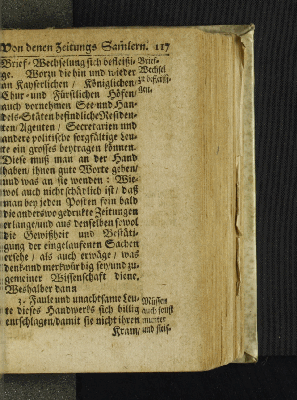 Von denen Zeitungs Samlern. 117
Brief-Wechselung sich befleissi-
ge. Worzu die hin und wieder
an Kayserlichen / Königlichen /
Chur- und Fürstlichen Höfen /
auch vornehmen See und Han-
dels-Städten befindliche Residen-
ten Agenten / Secretarien und
andere politische sorgfältige Leu-
te ein grosses beytragen können.
Diese muß man an der Hand
haben / ihnen gute Worte geben /
und was an sie wenden: Wie-
wol auch nicht schätlich ist / daß
man bey jeden Posten fein bald
die anderswo gedrukte Zeitungen
erlange / und aus denselben sowol
die Gewißheit und Bestäti-
gung der eingelaufenen Sachen
ersehe / als auch erwäge / was
denk- und merkwürdig sey / und zu
gemeiner Wissenschaft diene.
Weshalber dann
3. Faule und unachtsame Leu-
te dieses Handwerks sich billig
entschlagen / damit sie nicht ihren
Kram /
Brief-
Wechsel
zu befleissi-
gen.
Müssen
auch sonst
munter
und fleis-